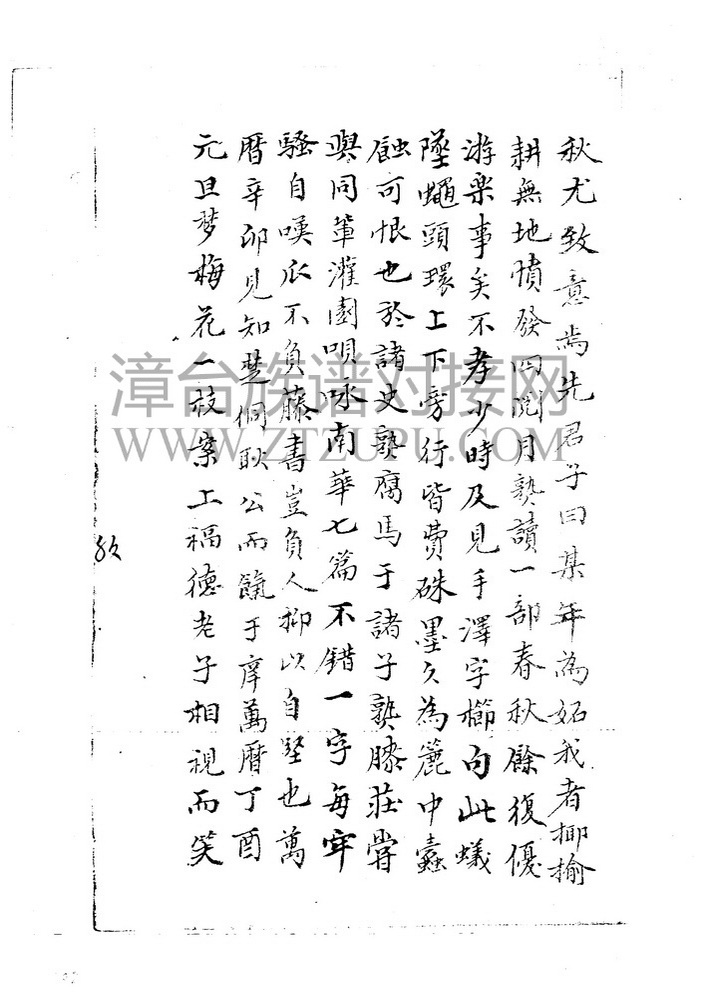 秋尤致意焉先君子曰某年為妬我者揶揄
耕無地憤發四閱月熟讀一部春秋餘復優
游樂事矣不孝少時及見手澤字櫛句此蟻
墜蠅頭環上下旁行皆費硃墨久為簏中蠹
蝕可恨也於諸史熟腐馬于諸子熟滕莊嘗
與同輩灌園唄咏南華七篇不錯一字每牢
騷自嘆瓜不負藤書豈負人抑以自堅也萬
曆辛卯見知楚侗耿公而餼于庠萬曆丁酉
元旦梦梅花一枝案上福德老子相視而笑
漳台族谱对接网
WWW.ZTZUPU.COM